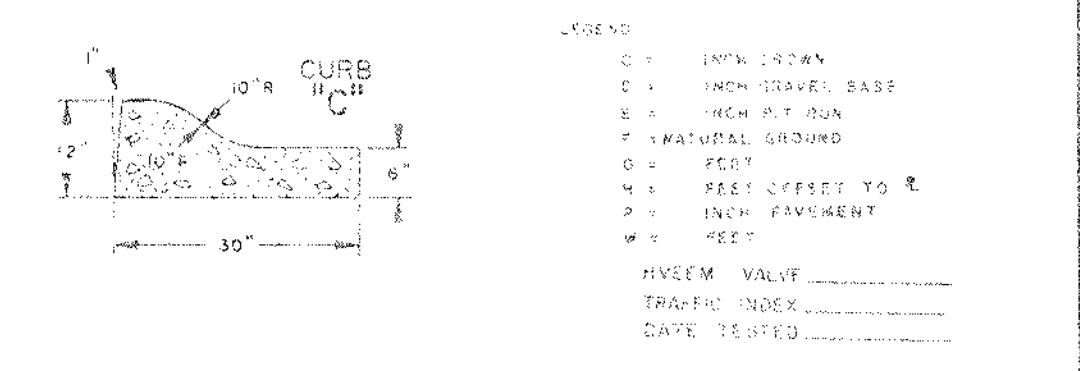 1"
CURB
"C"
10"R
10"R
6"
30"
LEGEND
C = INCH CROWN
INCH GRAVEL BASE
E = INCH PIT RUN
F = NATURAL GROUND
G = FEET
H = FEET OFFSET TO ℄
P = INCH PAVEMENT
W = FEET
HVEEM VALVE
TRAFFIC INDEX
DATE TESTED